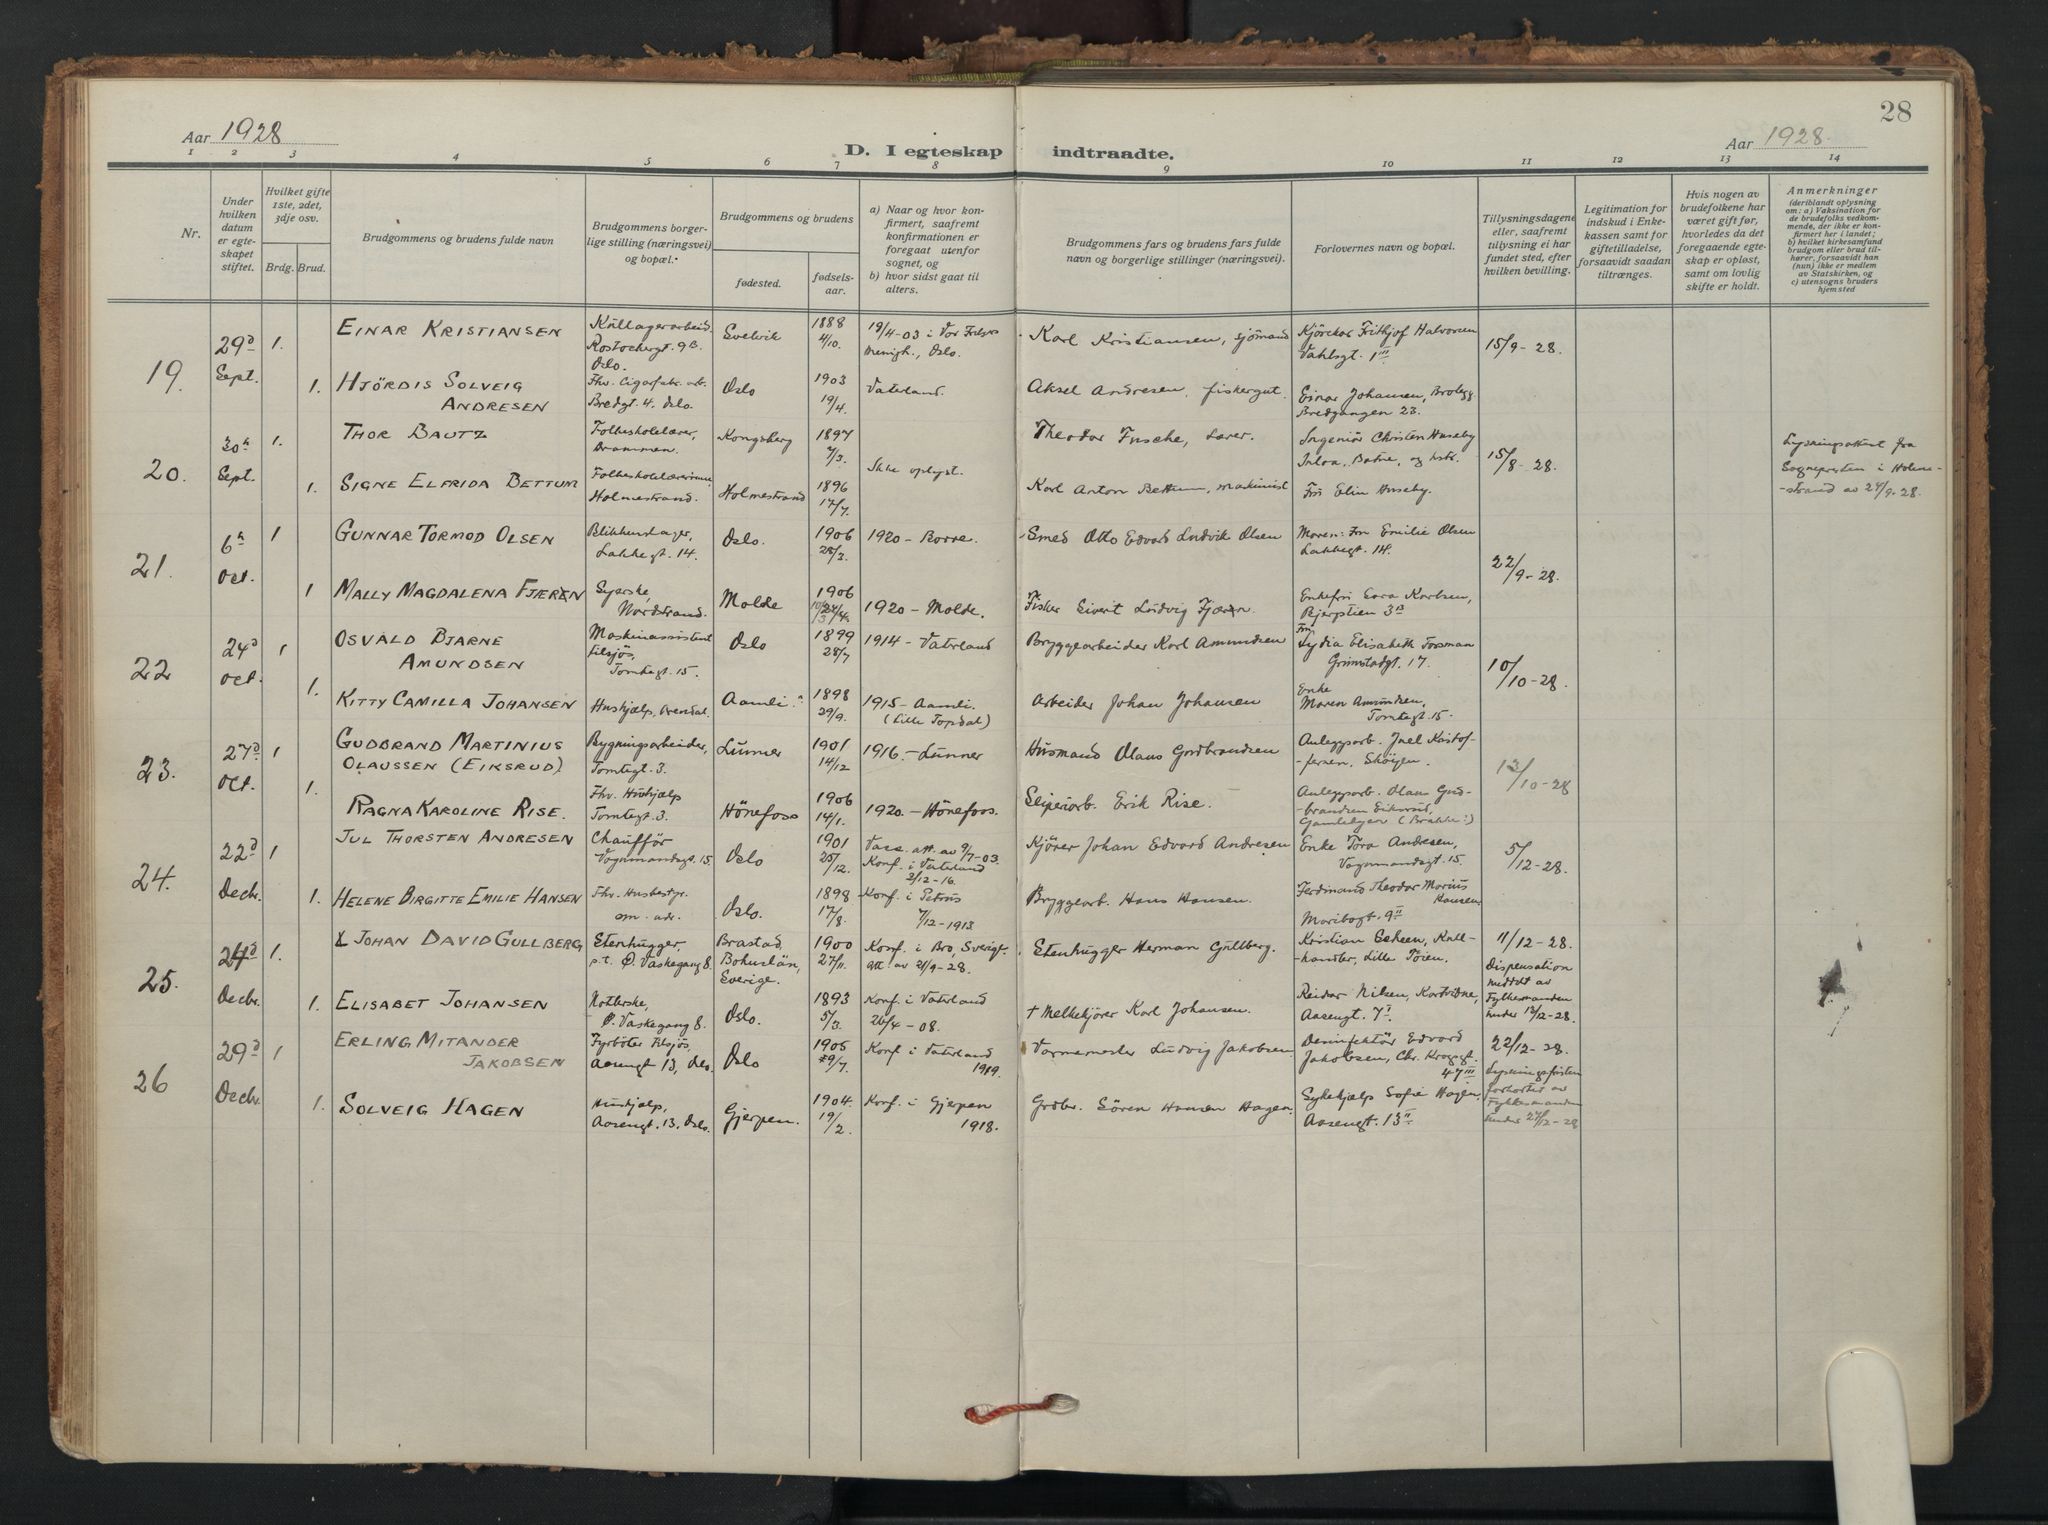 28
Aar 1928
D. I egteskap indtraadte.
Aar 1928.
1 2 3 4 5 6 7 8 9 10 11 12 13 14
Nr.
Under hvilken datum er egteskapet stiftet.
Hvilket gifte 1ste, 2det, 3dje osv.
Brdg. Brud.
Brudgommens og brudens fulde navn
Brudgommens borgerlige stilling (næringsvei) og bopæl.
Brudgommens og brudens
fødested.
fødselsaar.
a) Naar og hvor konfirmert, saafremt konfirmationen er foregaat utenfor sognet, og
b) hvor sidst gaat til alters.
Brudgommens fars og brudens fars fulde navn og borgerlige stillinger (næringsvei).
Forlovernes navn og bopæl.
Tillysningsdagene eller, saafremt tillysning ei har fundet sted, efter hvilken bevilling.
Legitimation for indskud i Enkekassen samt for giftetilladelse, forsaavidt saadan tiltrænges.
Hvis nogen av brudefolkene har været gift før, hvorledes da det foregaaende egteskap er opløst, samt om lovlig skifte er holdt.
Anmerkninger
(deriblandt oplysning om: a) Vaksination for de brudefolks vedkommende, der ikke er konfirmert her i landet;
b) hvilket kirkesamfund brudgom eller brud tilhører, forsaavidt han (hun) ikke er medlem av Statskirken, og
c) utensogns bruders hjemsted
19. 29d Sept. 1. EINAR KRISTIANSEN Kullagerarbeid. Rostockergt. 9 B. Oslo. Svelvik 1888 4/10. 19/4-03 i Vor Frelsers menigh., Oslo. Karl Kristiansen, sjömand Kjörekar Frithjof Halvorsen Vahlsgt. 1 III 15/9-28.
1. HJÖRDIS SOLVEIG ANDRESEN Fhv. Cigarfabr. arb. Bredgt. 4. Oslo. Oslo 1903 19/4. Vaterland. Aksel Andresen, fiskergut. Einar Johansen, Brolegg. Bredgangen 23.
20. 30te Sept. 1. THOR BAUTZ Folkeskolelærer, Drammen. Kongsberg 1897 7/3. Ikke oplyst. Theodor Fusche, Lærer. Ingeniör Christen Huseby 15/8-28. Lysningsattest fra Sognepresten i Holmestrand av 24/9-28.
1. SIGNE ELFRIDA BETTUM Folkeskolelærerinne, Holmestrand. Holmestrand 1896 17/7. Karl Anton Bettum, maskinist Fru Elin Huseby.
21. 6te Oct. 1 GUNNAR TORMOD OLSEN Blikkenslager, Lakkegt. 14. Oslo. 1906 28/3. 1920 - Borre. Smed Otto Edvard Ludvik Olsen Moren: Fru Emilie Olsen Lakkegt. 14. 22/9-28.
1 MALLY MAGDALENA FJÆREN Syerske, Nordstrand. Molde 1906 1920 - Molde. Fisker Sivert Ludvig Fjæren. Enkefru Sara Karlsen, Bjerpstien 3 B
22 24d Oct. 1 OSVALD BJARNE AMUNDSEN Maskinassistent tilsjös, Tomtegt. 15. Oslo 1899 28/7 1914 - Vaterland Bryggearbeider Karl Amundsen Fru Lydia Elisabeth Forsman Grimstadgt. 17. 10/10-28.
1. KITTY CAMILLA JOHANSEN Hushjælp, Arendal. Aamli. 1898 29/9. 1915 - Aamli. (Lille Topdal) Arbeider Johan Johansen Enke Maren Amundsen, Tomtegt. 15.
23. 27d Oct. 1 GUDBRAND MARTINIUS OLAUSSEN (EIKSRUD) Bygningsarbeider, Tomtegt. 3. Lunner 1901 14/12 1916. - Lunner Husmand Olaus Gudbrandsen Anleggsarb. Juel Kristoffersen, Sköyen. 13/10-28
1. RAGNA KAROLINE RISE. Fhv. Hushjælp Tomtegt. 3. Hönefoss 1906 14/1. 1920. - Hönefoss. Sliperiarb. Erik Rise. Anleggsarb. Olaus Gudbrandsen Eiksrud, Gamlebyen (Brakke:)
24. 22d Decbr. 1 JUL THORSTEN ANDRESEN Chaufför Vognmandsgt. 15. Oslo 1901 25/12. Vacc. att. av 9/7-03. Konf. i Vaterland 2/12-16. Kjörer Johan Edvard Andresen Enke Tora Andresen, Vognmandsgt. 15. 5/12-28.
1. HELENE BIRGITTE EMILIE HANSEN Fhv. Husbestyr. sm. adr. Oslo. 1898 17/8. Konf. i Petrus 7/12-1913 Bryggearb. Hans Hansen. Ferdinand Theodor Marius Hansen Maribogt. 9 II
25. 24d Decbr. 1. JOHAN DAVID GULLBERG Stenhugger, p.t. Ø. Vaskegang 8. Brastad, Bohuslän, Sverige. 1900 27/11. Konf. i Bro, Sverige att. av 21/9-28. Stenhugger Herman Gullberg. Kristian Scheen, Kullhandler, Lille Töien. 11/12-28. Dispensation meddelt av Fylkesmanden under 12/12-28.
1. ELISABET JOHANSEN Notterske, Ø. Vaskegang 8. Oslo. 1893 5/3. Konf. i Vaterland 26/4-08. + Melkekjörer Karl Johansen. Reidar Nilsen, Aasengt. 7 I
26 29d Decbr. 1 ERLING MITANDER JAKOBSEN Fyrböter tilsjös, Aasengt 13, Oslo. Oslo 1905 29/7. Konf. i Vaterland 1919. Varmemester Ludvig Jakobsen. Desinfektör Edvard Jakobsen, Chr. Kroggt. 47 III 22/12-28. Lysningsfristen forkortet av Fylkesmanden under 27/12-28
1. SOLVEIG HAGEN Hushjælp, Aasengt. 13. Oslo. Gjerpen. 1904. 19/2. Konf. i Gjerpen 1918. Grdbr. Sören Hansen Hagen. Sykehjælp Sofie Hagen, Aasengt. 13 II